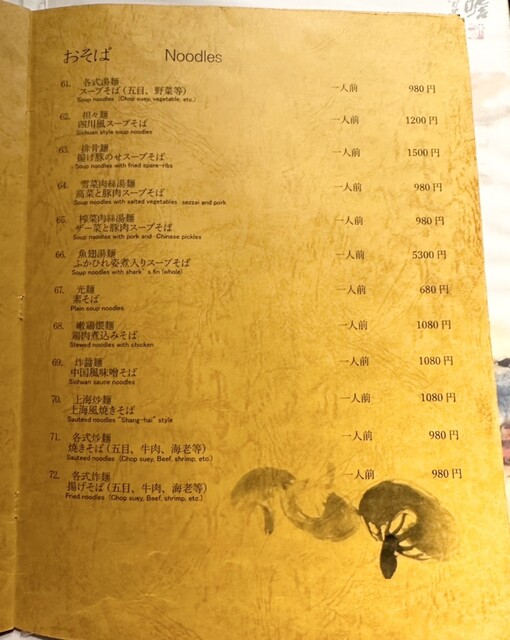 おそば Noodles
61. 各式湯麺
スープそば (五目、野菜等) 一人前 980円
Soup noodles (Chop suey, vegetable, etc.)
62. 担々麺
四川風スープそば 一人前 1200円
Sichuan style soup noodles
63. 排骨麺
揚げ豚のせスープそば 一人前 1500円
Soup noodles with fried spare-ribs
64. 雪菜肉絲湯麺
高菜と豚肉スープそば 一人前 980円
Soup noodles with salted vegetables sezzai and pork
65. 搾菜肉絲湯麺
ザー菜と豚肉スープそば 一人前 980円
Soup noodles with pork and Chinese pickles
66. 魚翅湯麺
ふかひれ姿煮入りスープそば 一人前 5300円
Soup noodles with shark's fin (whole)
67. 光麺
素そば 一人前 680円
Plain soup noodles
68. 嫩鶏煨麺
鶏肉煮込みそば 一人前 1080円
Stewed noodles with chicken
69. 炸醤麺
中国風味噌そば 一人前 1080円
Sichuan sauce noodles
70. 上海炒麺
上海風焼きそば 一人前 1080円
Sauteed noodles "Shang-hai" style
71. 各式炒麺
焼きそば (五目、牛肉、海老等) 一人前 980円
Sauteed noodles (Chop suey, Beef, shrimp, etc.)
72. 各式炸麺
揚げそば (五目、牛肉、海老等) 一人前 980円
Fried noodles (Chop suey, Beef, shrimp, etc.)